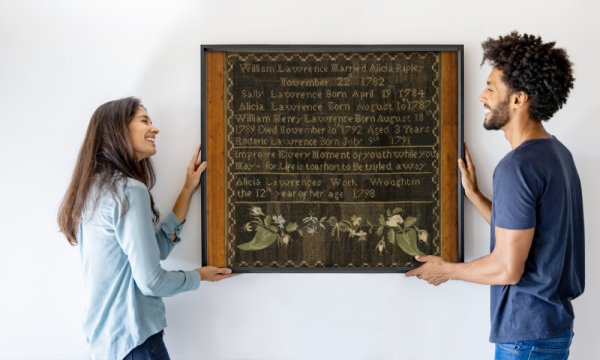 William Lawrence Married Alicia Ripley
November 22d 1782
Sally Lawrence Born April 19 1784
Alicia Lawrence Born August 10 1787
William Henry Lawrence Born August 18th
1789 Died November 10 1792 Aged 3 Years
Roderic Lawrence Born July 9th 1791
Improve Every Moment of youth while you
May for Life is too short to Be trifled away
Alicia Lawrences Work Wrought in
the 12th year of her age 1798